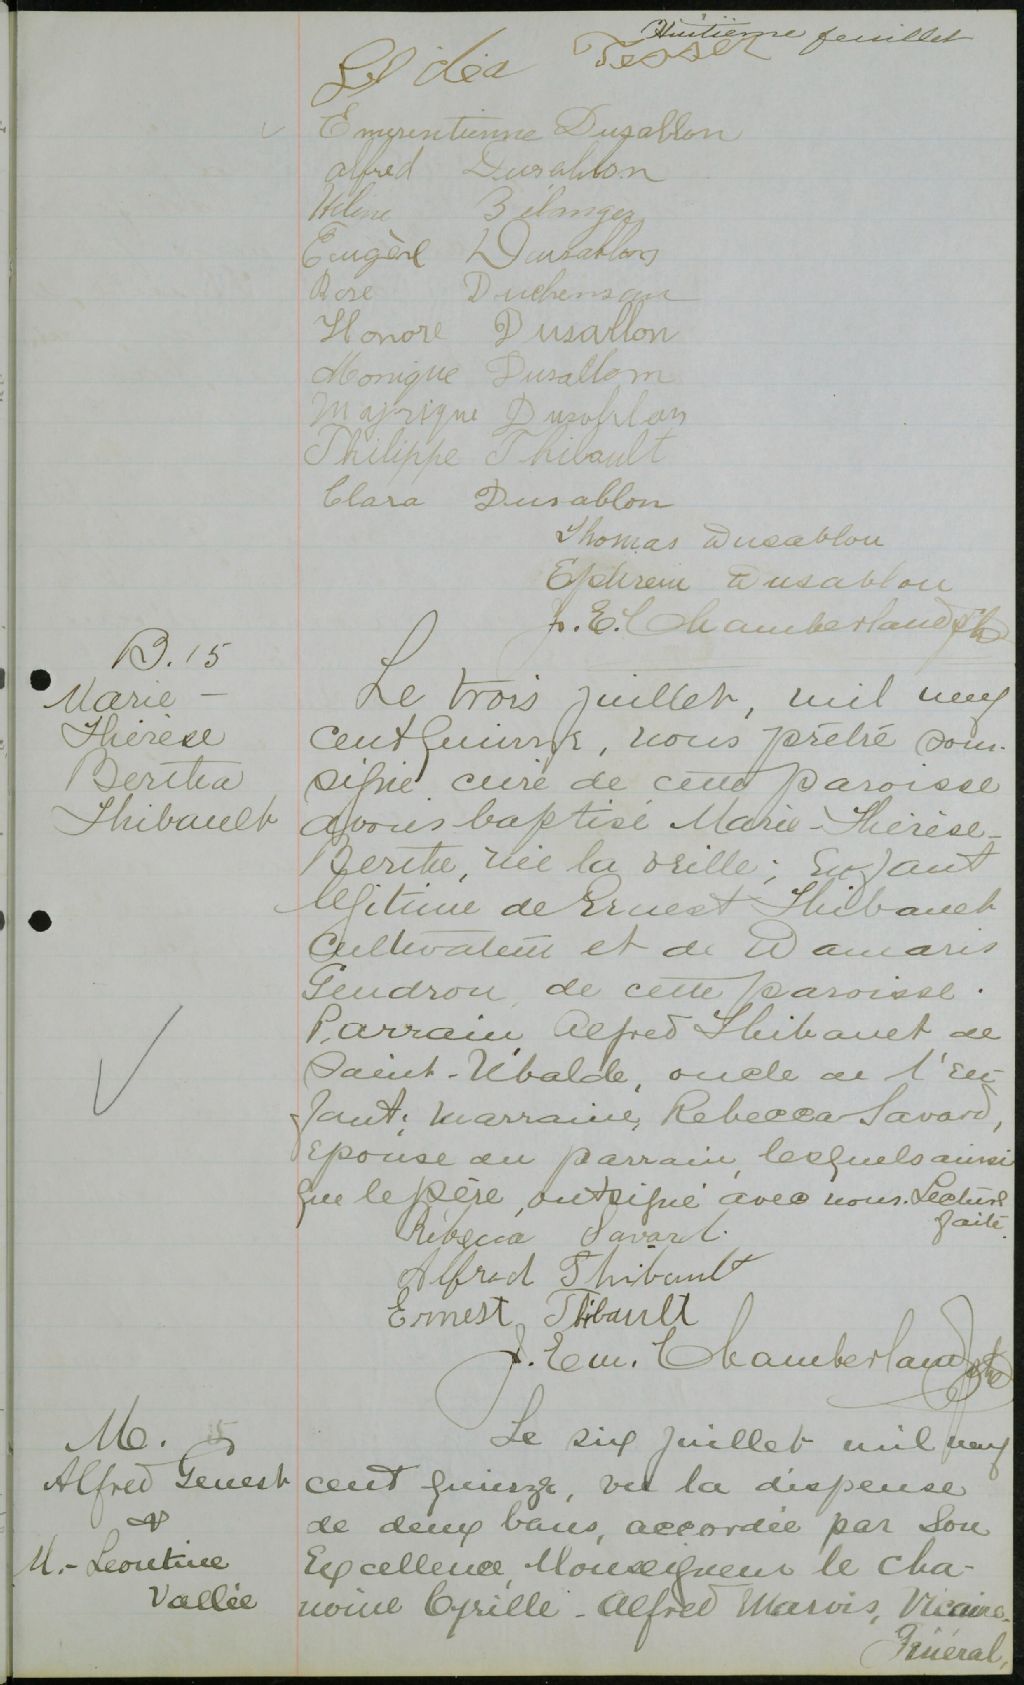 Huitième feuillet
Lidéa Tessier
Emerentienne Dusablon
Alfred Dusablon
Hélène Bélanger
Eugène Dusablon
Rose Duchensau
Honore Dusablon
Monique Dusablon
Dusablon
Philippe Thibault
Clara Dusablon
Thomas Dusablon
Ephrem Dusablon
J. E. Chamberland Ptre
B. 15
Marie-
Thérèse
Bertha
Thibault
Le trois juillet, mil neuf
cent quinze, nous prêtre sous-
signé curé de cette paroisse
avons baptisé Marie-Thérèse-
Berthe, née la veille; Enfant
légitime de Ernest Thibault
cultivateur et de Damaris
Gendron, de cette paroisse.
Parrain, Alfred Thibault de
Saint-Ubalde, oncle de l'en-
fant; marraine, Rebecca Savard,
épouse du parrain, lesquels ainsi
que le père, ont signé avec nous. Lecture
faite.
Rébecca Savard.
Alfred Thibault
Ernest Thibault
J. Em. Chamberland Ptre
M. 5
Alfred Genest
&
M.-Leontine
Vallée
Le six juillet mil neuf
cent quinze, vu la dispense
de deux bans, accordée par Son
Excellence, Monseigneur le cha-
noine Cyrille-Alfred Marois, Vicaire-
Général,